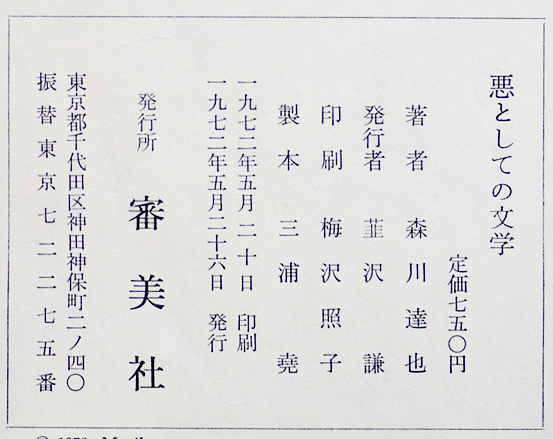 悪としての文学
定価七五〇円
著者 森川達也
発行者 韮沢謙
印刷 梅沢照子
製本 三浦堯
一九七二年五月二十日 印刷
一九七二年五月二十六日 発行
発行所 審美社
東京都千代田区神田神保町二ノ四〇
振替東京七二二七五番